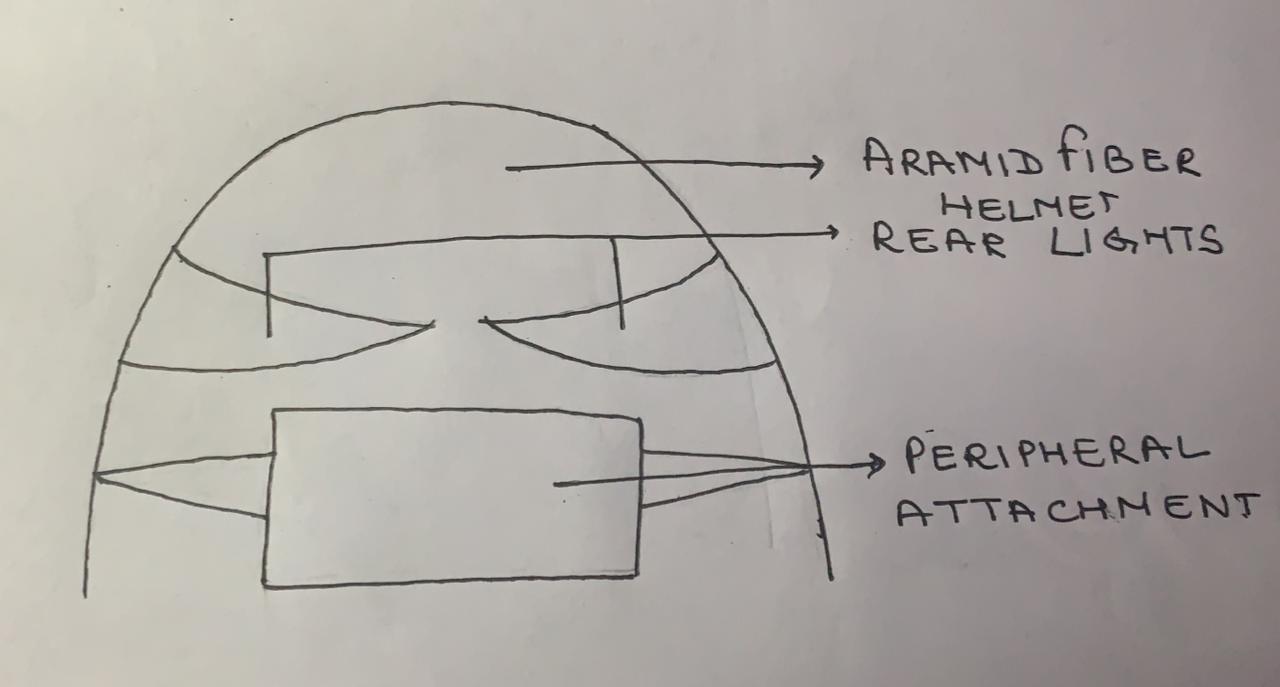 ARAMID fIBER
HELMET
REAR LIGHTS
PERIPHERAL
ATTACHMENT